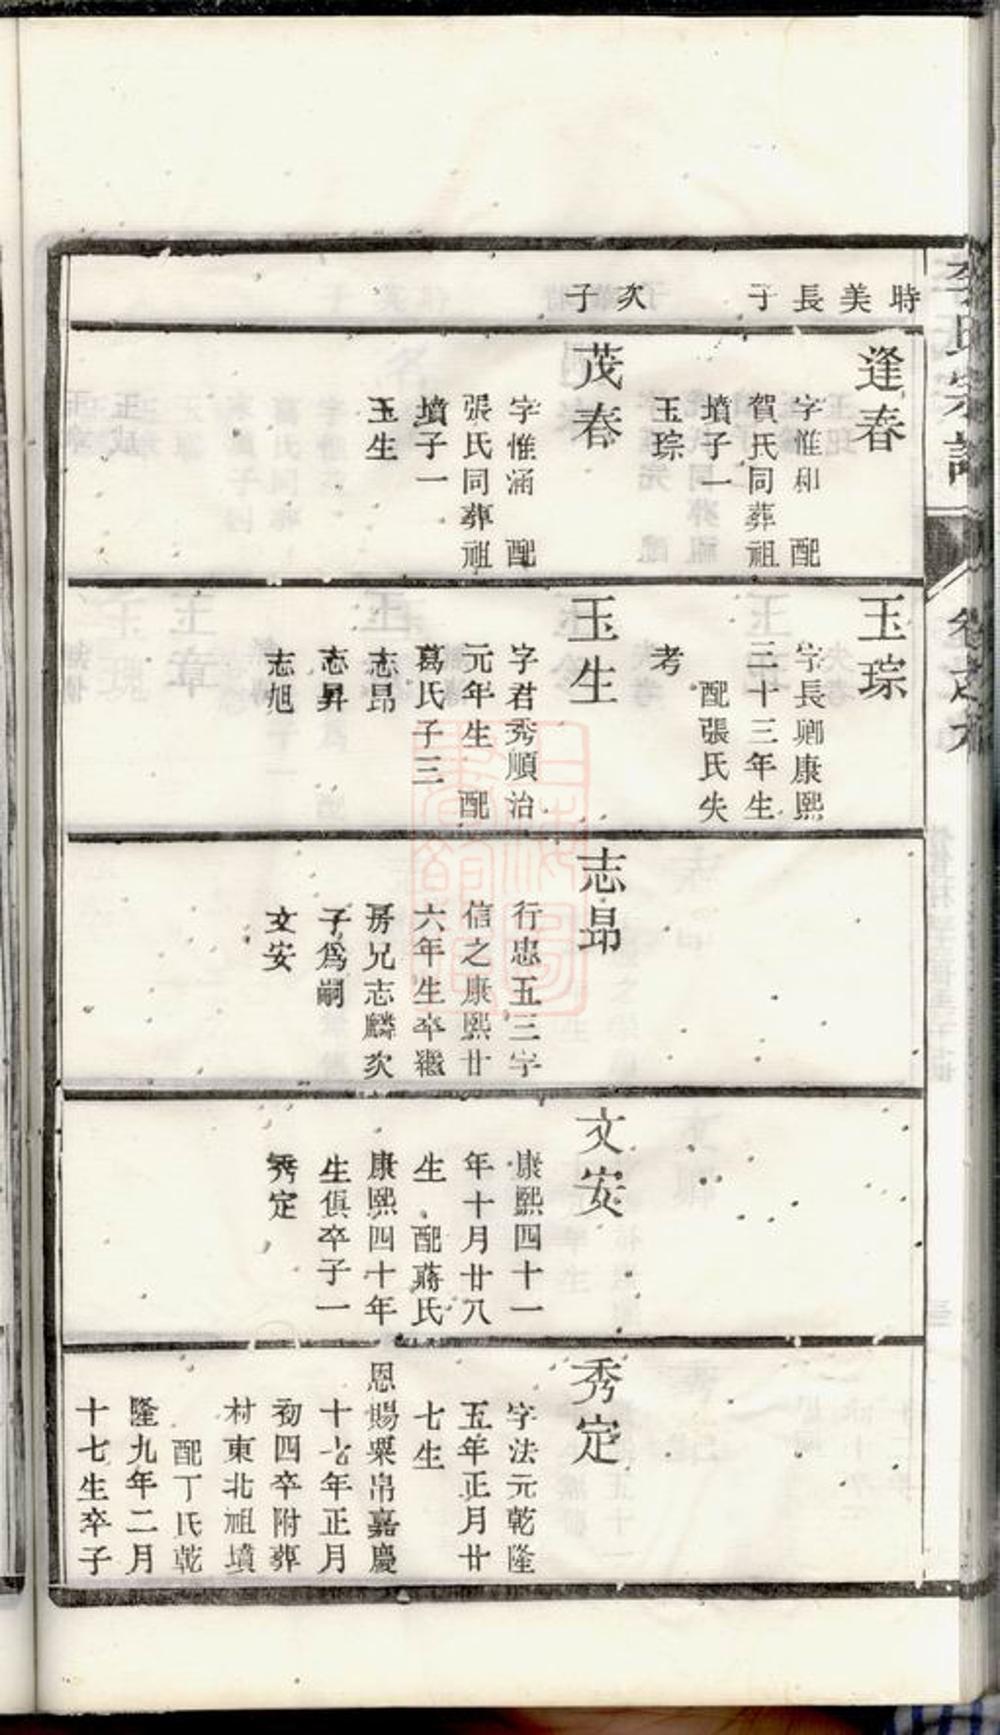 李氏宗譜
卷之九
時美長子
次子
逢春
字惟和 配
賀氏同葬祖
墳子一
玉琮
茂春
字惟涵 配
張氏同葬祖
墳子一
玉生
玉琮
字長卿康熙
三十三年生
配張氏失
考
玉生
字君秀順治
元年生 配
葛氏子三
志昂
志昇
志旭
志昂
行忠五三字
信之康熙廿
六年生卒繼
房兄志麟次
子爲嗣
文安
文安
康熙四十一
年十月廿八
生 配蔣氏
康熙四十年
生俱卒子一
秀定
秀定
字法元乾隆
五年正月廿
七生
恩賜粟帛嘉慶
十七年正月
初四卒附葬
村東北祖墳
配丁氏乾
隆九年二月
十七生卒子